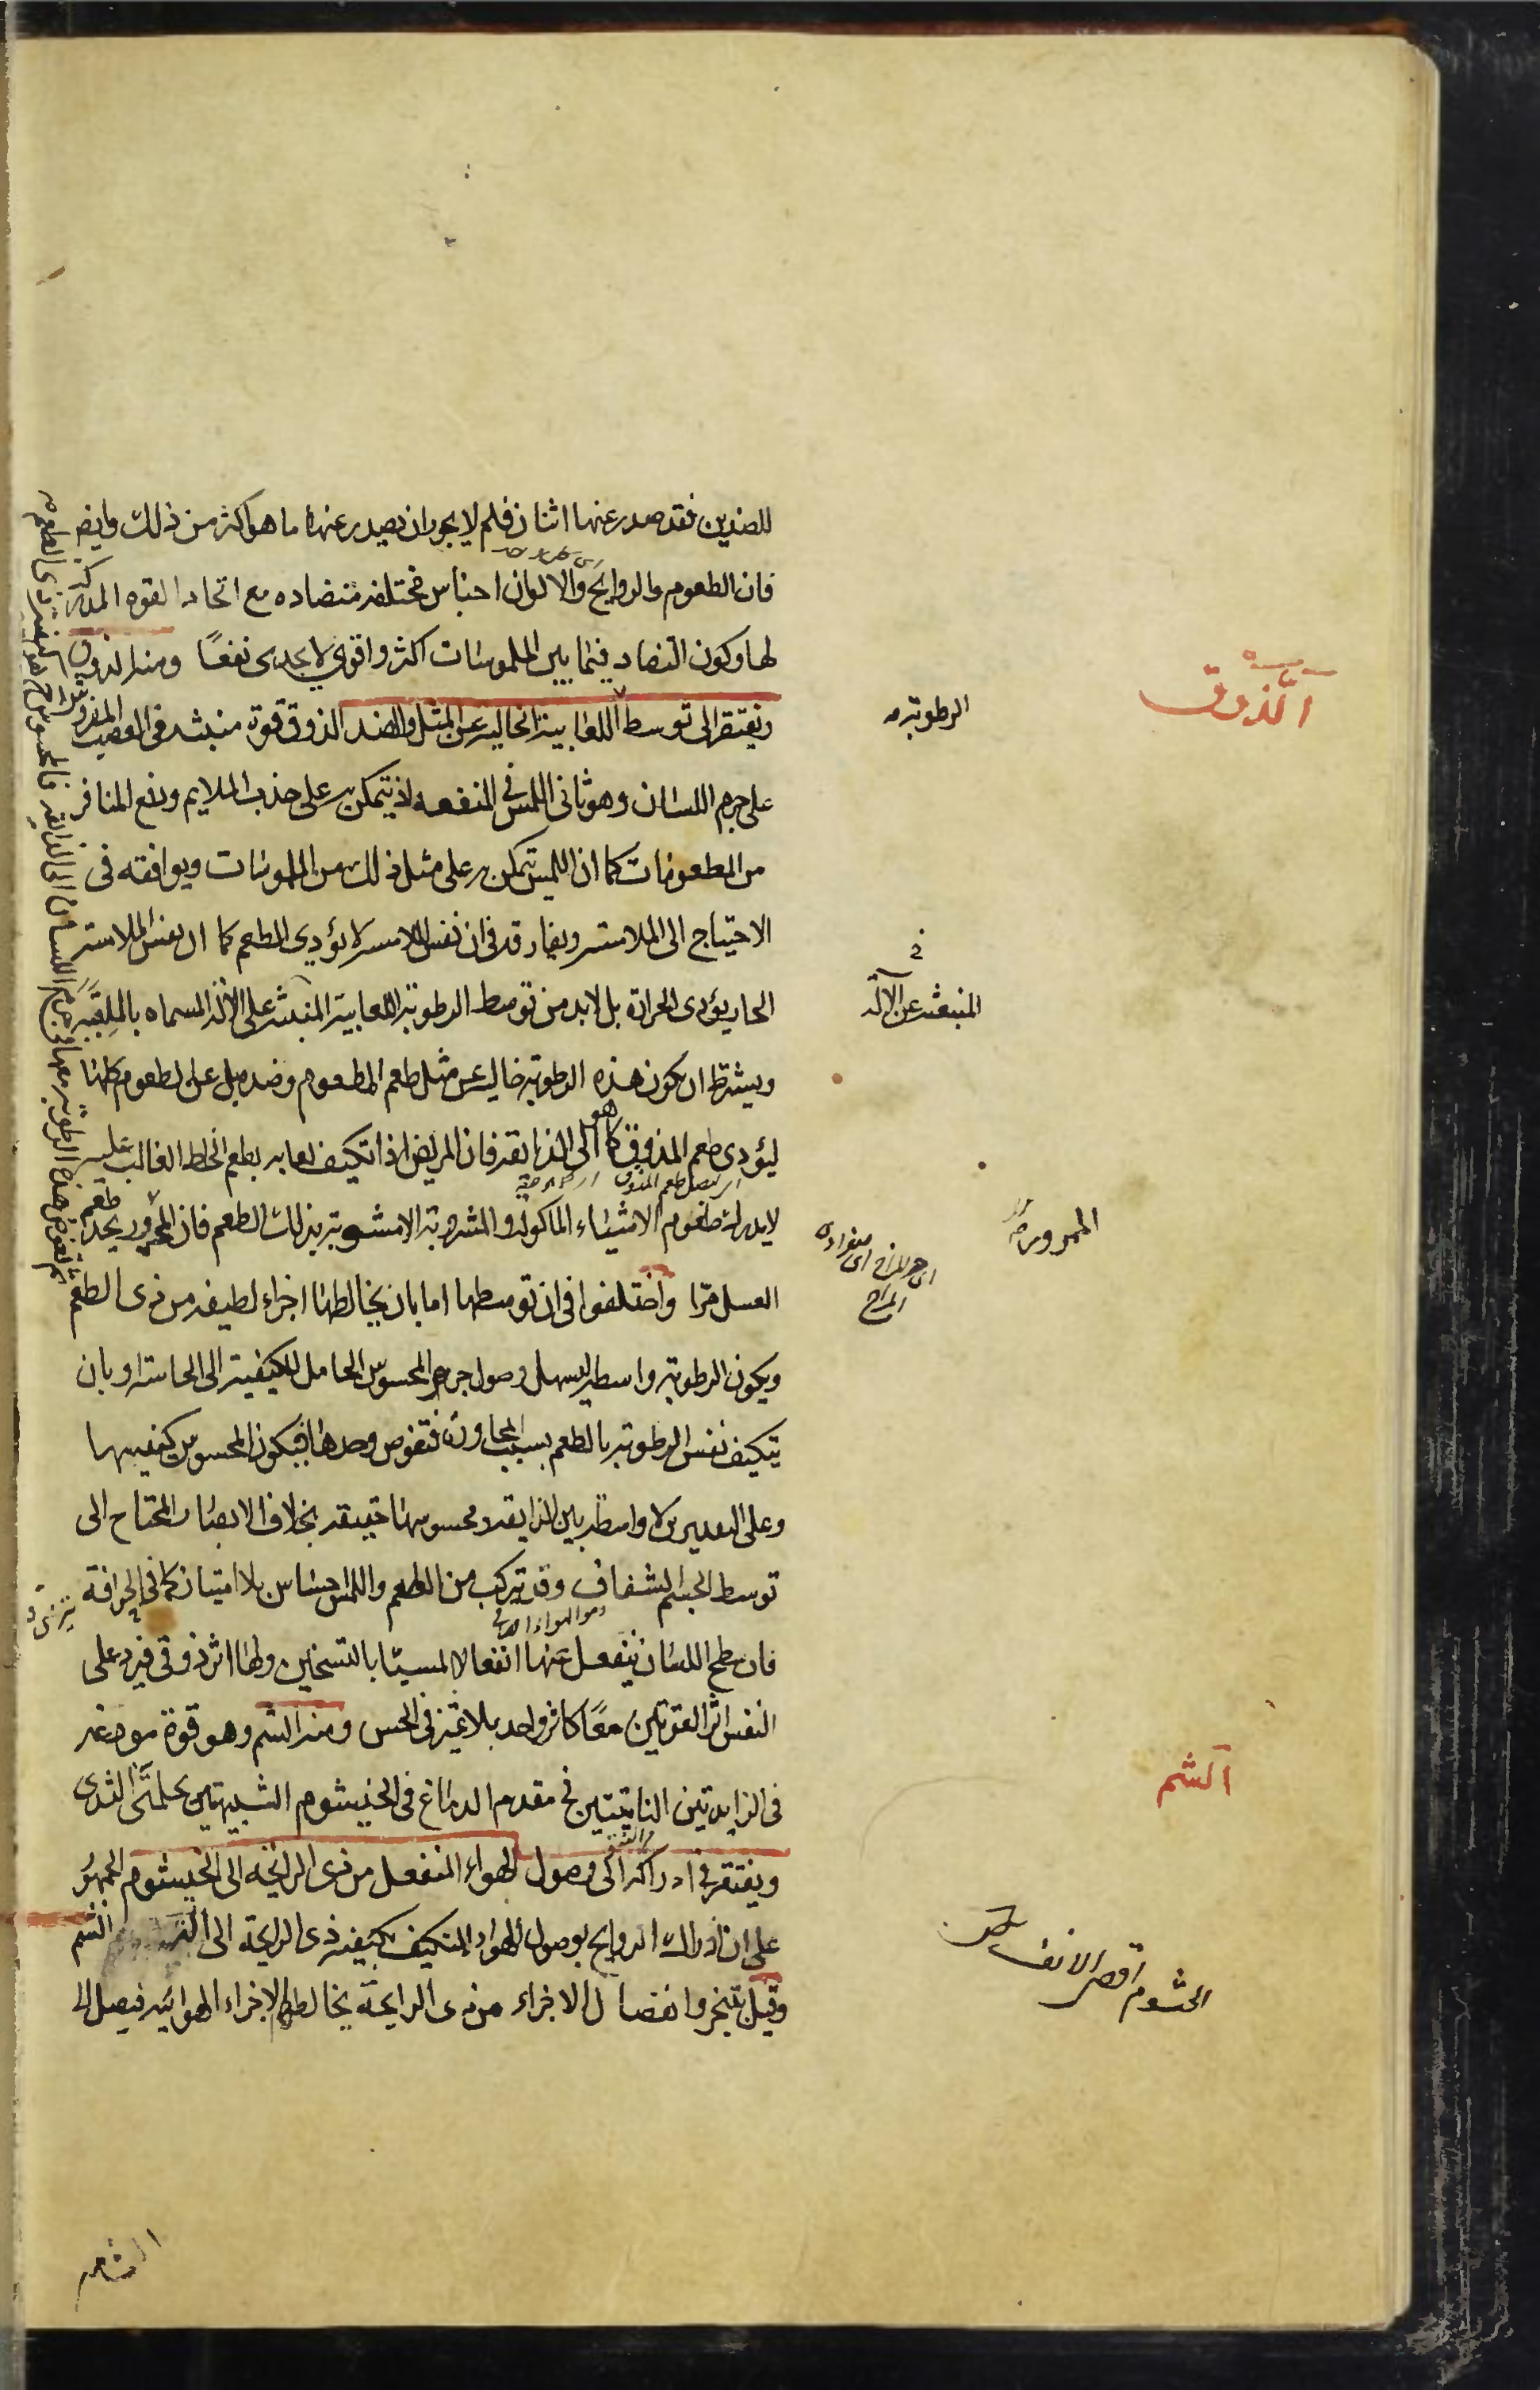 للضدين فقد صدر عنها اثنان فلم لا يجوز ان يصدر عنها ما هو اكثر من ذلك وايضا
فان الطعوم والروايح والالوان اجناس مختلفة متضاده مع اتحاد القوه المدركة
لها وكون التضاد فيما بين الملموسات اكثر واقوى لا يجدى نفعًا ومنه الذوق
ويفتقر الى توسط اللعابية الخالية عن المثل والضد الذوق قوة منبثه فى العصب المفروش
على جرم اللسان وهو ثانى اللمس فى المنفعه اذ يتمكن به على جذب الملايم ودفع المنافر
من المطعومات كما ان اللمس يتمكن به على مثل ذلك من الملموسات ويوافقه فى
الاحتياج الى الملامسة ويفارقه فى ان نفس الملامسة لا يؤدى الطعم كما ان نفس الملامسة
الحار يؤدى الحرارة بل لا بد من توسط الرطوبة اللعابية المنبثه على الآلة المسماه بالملعبة
ويشترط ان يكون هذه الرطوبة خالية عن مثل طعم المطعوم وضده بل عن الطعوم كلها
ليؤدى طعم المذوق كما هو الى الذايقة فان المريض اذا تكيف لعابه بطعم الخلط الغالب عليه
لا يدرك طعوم الاشياء الماكولة والمشروبة الا مشوبة بذلك الطعم فان المحرور يجد طعم
العسل مرّا واختلفوا فى ان توسطها اما بان يخالطها اجزاء لطيفه من ذى الطعم
ويكون الرطوبة واسطة ليسهل وصول جرم المحسوس الحامل للكيفية الى الحاسة او بان
يتكيف نفس الرطوبة بالطعم بسبب المجاورة فتغوص وحدها فيكون المحسوس كيفيتها
وعلى التقديرين لا واسطة بين الذايقة ومحسوسها حقيقة بخلاف الابصار المحتاج الى
توسط الجسم الشفاف وقد يتركب من الطعم واللمس احساس بلا امتياز كما فى الحرافة
فان سطح اللسان ينفعل عنها انفعالا لمسيّا بالتسخين ولها اثر ذوقى فيرد على
النفس اثر القوتين معًا كاثر واحد بلا تميز فى الحس ومنه الشم وهو قوة مودعة
فى الزايدتين الناتيتين فى مقدم الدماغ فى الخيشوم الشبيهتين بحلمتى الثدى
ويفتقر فى ادراكه الى وصول الهواء المنفعل من ذى الرايحة الى الخيشوم الجمهور
على ان ادراك الروايح بوصول الهواء المتكيف بكيفية ذى الرايحة الى الشم
وقيل بتبخر وانفصال الاجزاء من ذى الرايحة يخالط الاجزاء الهوائية فيصل الى
الشامه
الذوق
الرطوبة
المنبعثه عن الآلة
الممرور
المزاج
الشم
الخيشوم اقصى الانف